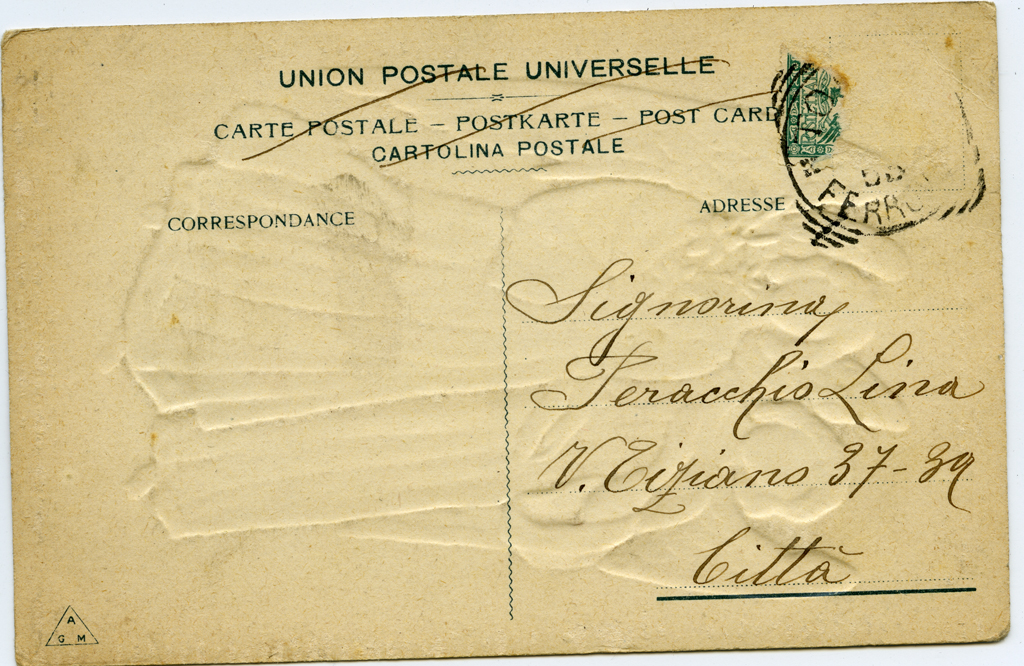 UNION POSTALE UNIVERSELLE
CARTE POSTALE – POSTKARTE – POST CARD
CARTOLINA POSTALE
CORRESPONDANCE
ADRESSE
Signorina
Teracchio Lina
V. Tiziano 37-39
Città
A
G M